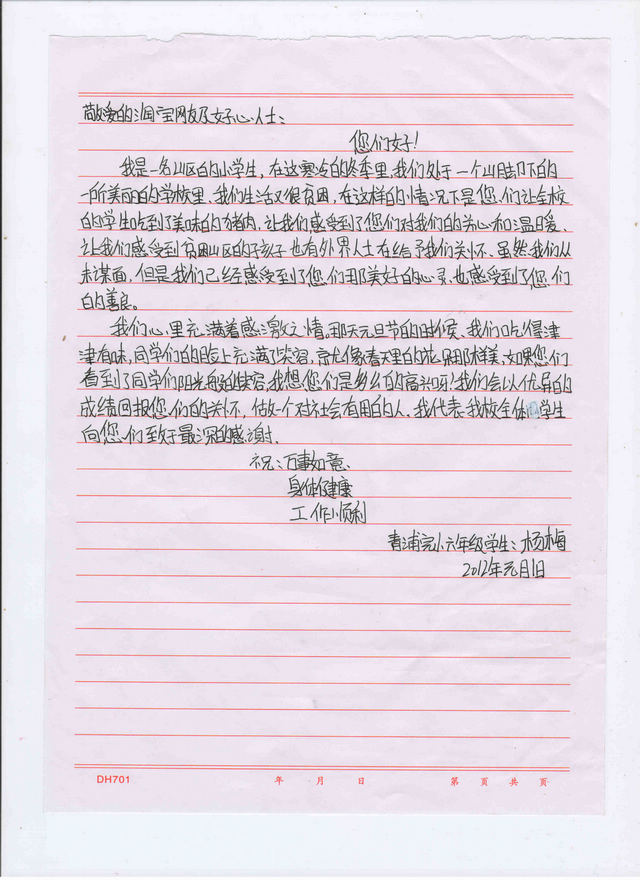 敬爱的淘宝网友及好心人士：
您们好！
我是一名山区的小学生，在这寒冷的冬季里，我们处于一个山脚下的
一所美丽的学校里，我们生活又很贫困，在这样的情况下是您们让全校
的学生吃到了美味的猪肉，让我们感受到了您们对我们的关心和温暖。
让我们感受到贫困山区的孩子也有外界人士在给予我们关怀。虽然我们从
未谋面，但是我们已经感受到了您们那美好的心灵。也感受到了您们
的善良。
我们心里充满着感激之情。那天元旦节的时候，我们吃得津
津有味，同学们的脸上充满了笑容，就像春天里的花朵那样美，如果您们
看到了同学们阳光般的笑容，我想您们是多么的高兴呀！我们会以优异的
成绩回报您们的关怀，做一个对社会有用的人。我代表我校全体 学生
向您们致于最深的感谢.
祝：万事如意、
身体健康
工作顺利
青浦完小六年级学生：杨梅
2012年元月1日
DH701 年 月 日 第 页 共 页